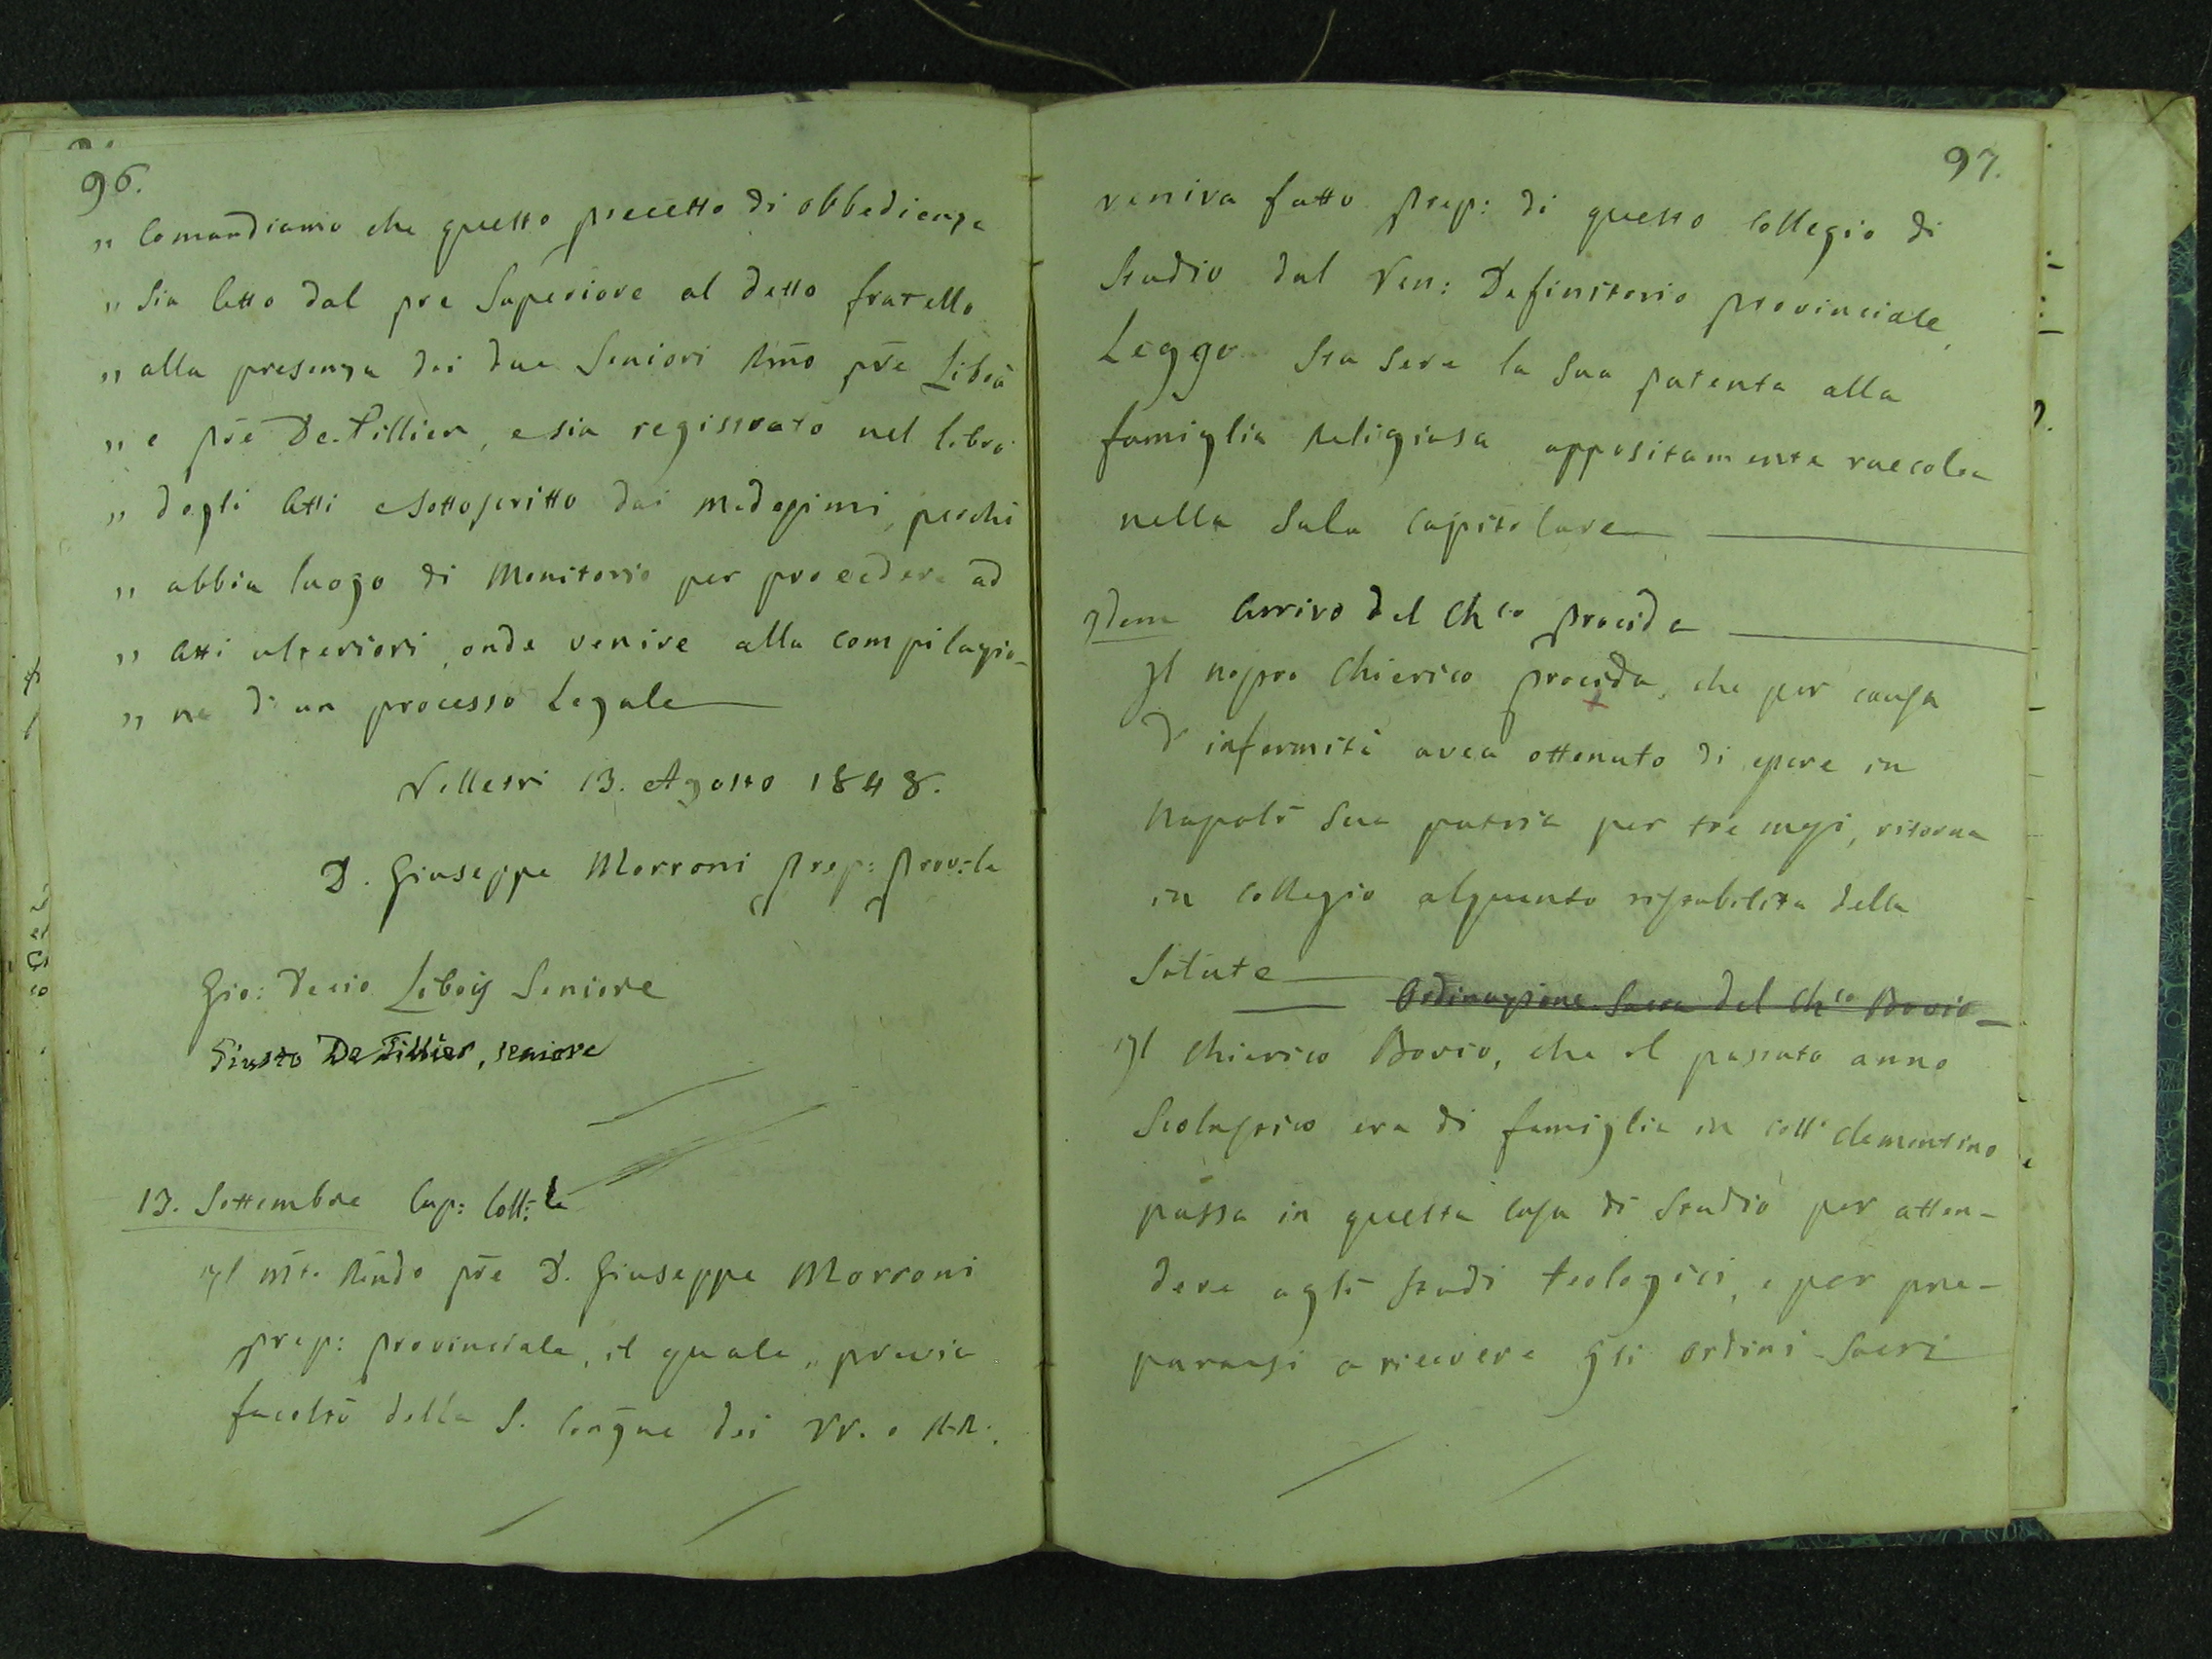 96.
" Comandiamo che questo precetto di obbedienza
" Sia letto dal pre Superiore al detto fratello
" alla presenza dei due Seniori Rmo pre Libois
" e pre De-Tillier, e sia registrato nel libro
" degli Atti e sottoscritto dai medesimi, perchè
" abbia luogo di Monitorio per procedere ad
" Atti ulteriori, onde venire alla compilazio-
" ne di un processo Legale
Velletri 13. Agosto 1848.
D. Giuseppe Morroni Prep: Prov:le
Gio: Decio Libois Seniore
Giusto De Tillier, seniore
13. Settembre Cap: Coll:le
Il Mto Rendo pre D. Giuseppe Morroni
prep: provinciale, il quale, previa
facoltà della S. Congne dei VV. e RR.
97.
veniva fatto Prep: di questo Collegio di
Studio dal Ven: Definitorio provinciale,
Legge Sta Sera la Sua patente alla
famiglia Religiosa appositamente raccolta
nella Sala Capitolare
Idem Arrivo del Chco Procida
Il nostro Chierico Procida, che per causa
d'infermità avea ottenuto di essere in
Napoli Sua patria per tre mesi, ritorna
in Collegio alquanto ristabilito della
Salute
Ordinazione Sacra del Chco Bovio
Il Chierico Bovio, che il passato anno
Scolastico era di famiglia in coll. Clementino
passa in questa Casa di Studio per atten-
dere agli studi teologici, e per pre-
pararsi a ricevere gli ordini Sacri